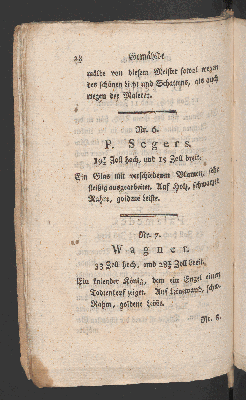 28 Gemählde
mälde von diesem Meister sowol wegen
des schönen Licht und Schattens, als auch
wegen der Malerey.
Nr. 6.
P. Segers.
19½ Zoll hoch, und 15 Zoll breit.
Ein Glas mit verschiedenen Blumen, sehr
fleißig ausgearbeitet. Auf Holz, schwarzer
Rahm, goldene Leiste.
Nr. 7.
Wagner.
33 Zoll hoch, und 28½ Zoll breit.
Ein knieender König, dem ein Engel einen
Todtenkopf zeiget. Auf Leinewand, schw.
Rahm, goldene Leiste.
Nr. 8.